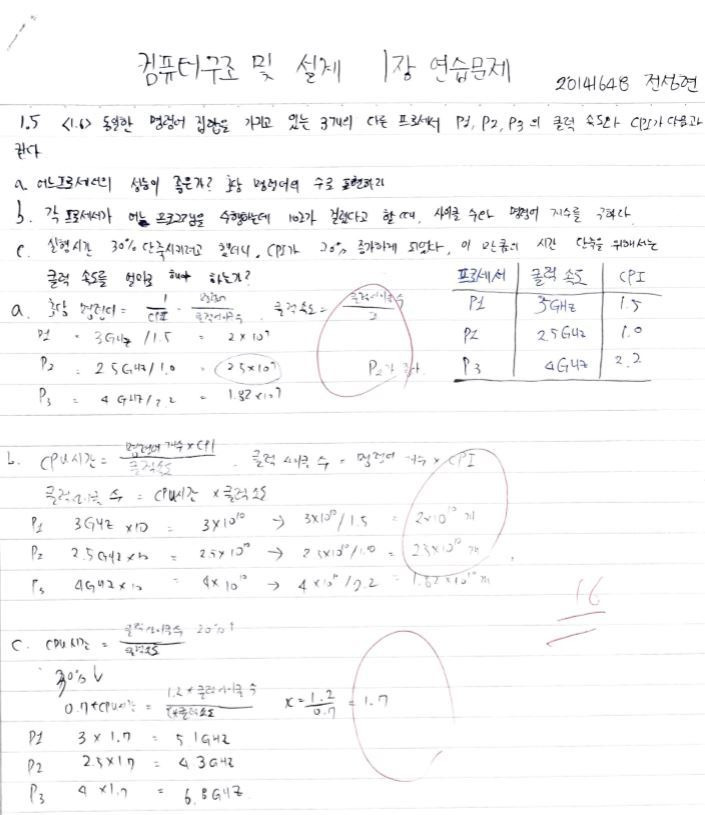 컴퓨터구조 및 설계 1장 연습문제
20141648 전성현
1.5 <1.6> 동일한 명령어 집합을 가지고 있는 3개의 다른 프로세서 P1, P2, P3 의 클럭 속도와 CPI가 다음과
같다
a. 어느프로세서의 성능이 좋은가? 초당 명령어의 수로 표현하라
b. 각 프로세서가 어느 프로그램을 수행하는데 10초가 걸렸다고 할 때, 사이클 수와 명령어 개수를 구하라
c. 실행시간 30% 단축시키려고 했더니, CPI가 20% 증가하게 되었다, 이 만큼의 시간 단축을 위해서는
클럭 속도를 얼마로 해야 하는가?
프로세서 클럭 속도 CPI
P1 3GHz 1.5
P2 2.5GHz 1.0
P3 4GHz 2.2
a. 초당 명령어 = 1/CPI · 명령어/클럭사이클수 클럭속도 = 클럭사이클 수/초
P1 = 3GHz /1.5 = 2×10⁹
P2 = 2.5GHz/1.0 = 2.5×10⁹ P2가
P3 = 4GHz/2.2 = 1.82×10⁹
b. CPU시간 = 명령어 개수×CPI/클럭속도 클럭 사이클 수 = 명령어 개수 × CPI
클럭사이클 수 = CPU시간 × 클럭속도
P1 3GHz ×10 = 3×10¹⁰ → 3×10¹⁰/1.5 = 2×10¹⁰ 개
P2 2.5GHz×10 = 2.5×10¹⁰ → 2.5×10¹⁰/1.0 = 2.5×10¹⁰ 개
P3 4GHz×10 = 4×10¹⁰ → 4×10¹⁰/2.2 = 1.82×10¹⁰ 개
16
c. CPU시간 = 클럭사이클수 20%↑/클럭속도
30%↓
0.7*CPU시간 = 1.2*클럭사이클 수/x*클럭속도 x = 1.2/0.7 = 1.7
P1 3 × 1.7 = 5.1GHz
P2 2.5×1.7 = 4.3GHz
P3 4 ×1.7 = 6.8GHz